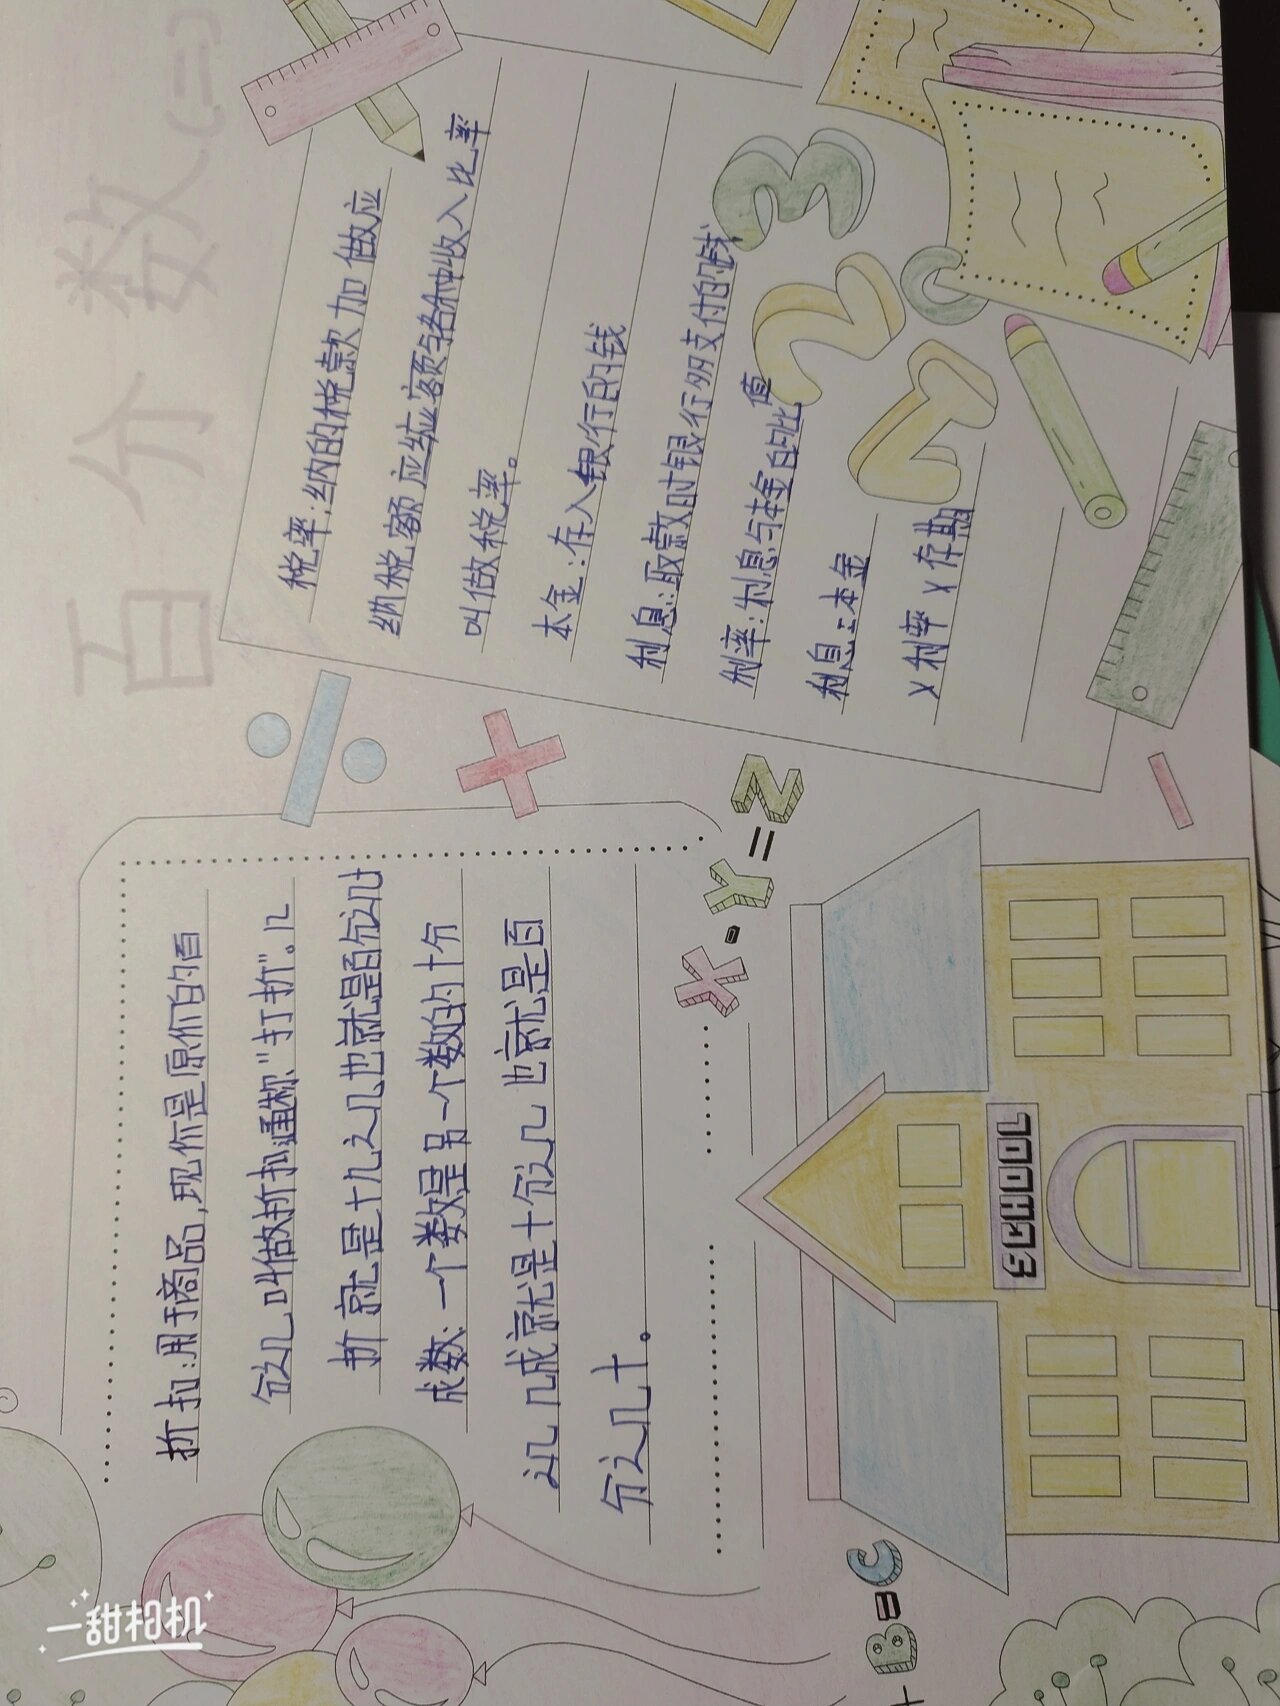 百分数(二)
折扣:用于商品,现价是原价的百
分之几叫做折扣通称"打折"。几
折就是十几之几也就是百分之几十
成数:一个数是另一个数的十分
之几几成就是十分之几也就是百
分之几十。
税率:纳的税款加做应
纳税额应纳应额与各种收入比率
叫做税率。
本金:存入银行的钱
利息:取款时银行多支付的钱
利率:利息与本金的比值
利息:本金
×利率×存期
X-Y=Z
SCHOOL
+B=C
一甜相机